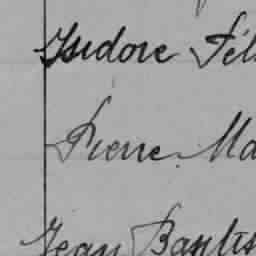 Isidore Fél
Pierre Ma
Jean Baptis